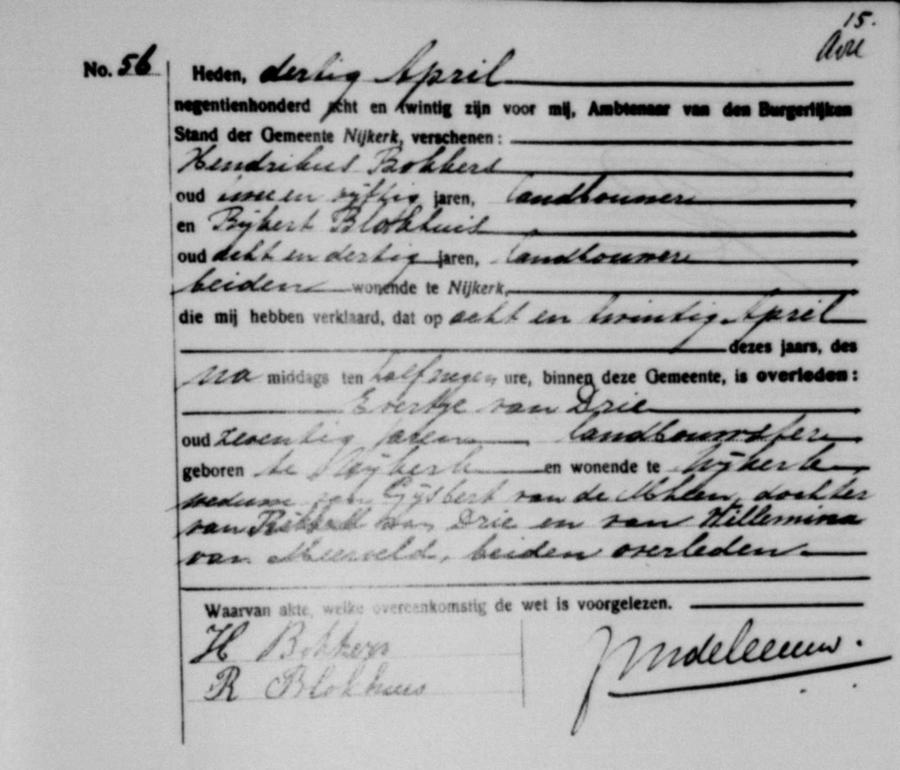 15.
No. 56
Heden, dertig April
negentienhonderd acht en twintig zijn voor mij, Ambtenaar van den Burgerlijken
Stand der Gemeente Nijkerk, verschenen:
Hendrikus Bokkers
oud twee en vijftig jaren, landbouwer
en Rijkert Blokhuis
oud acht en dertig jaren, landbouwer
beiden wonende te Nijkerk,
die mij hebben verklaard, dat op acht en twintig April
dezes jaars, des
na middags ten half negen ure, binnen deze Gemeente, is overleden:
Evertje van Drie
oud zeventig jaren landbouwster
geboren te Nijkerk en wonende te Nijkerk
weduwe van Gijsbert van de Mhlen, dochter
van van Drie en van Willemina
van Meerveld, beiden overleden
Waarvan akte, welke overeenkomstig de wet is voorgelezen.
H Bokkers
R Blokhuis